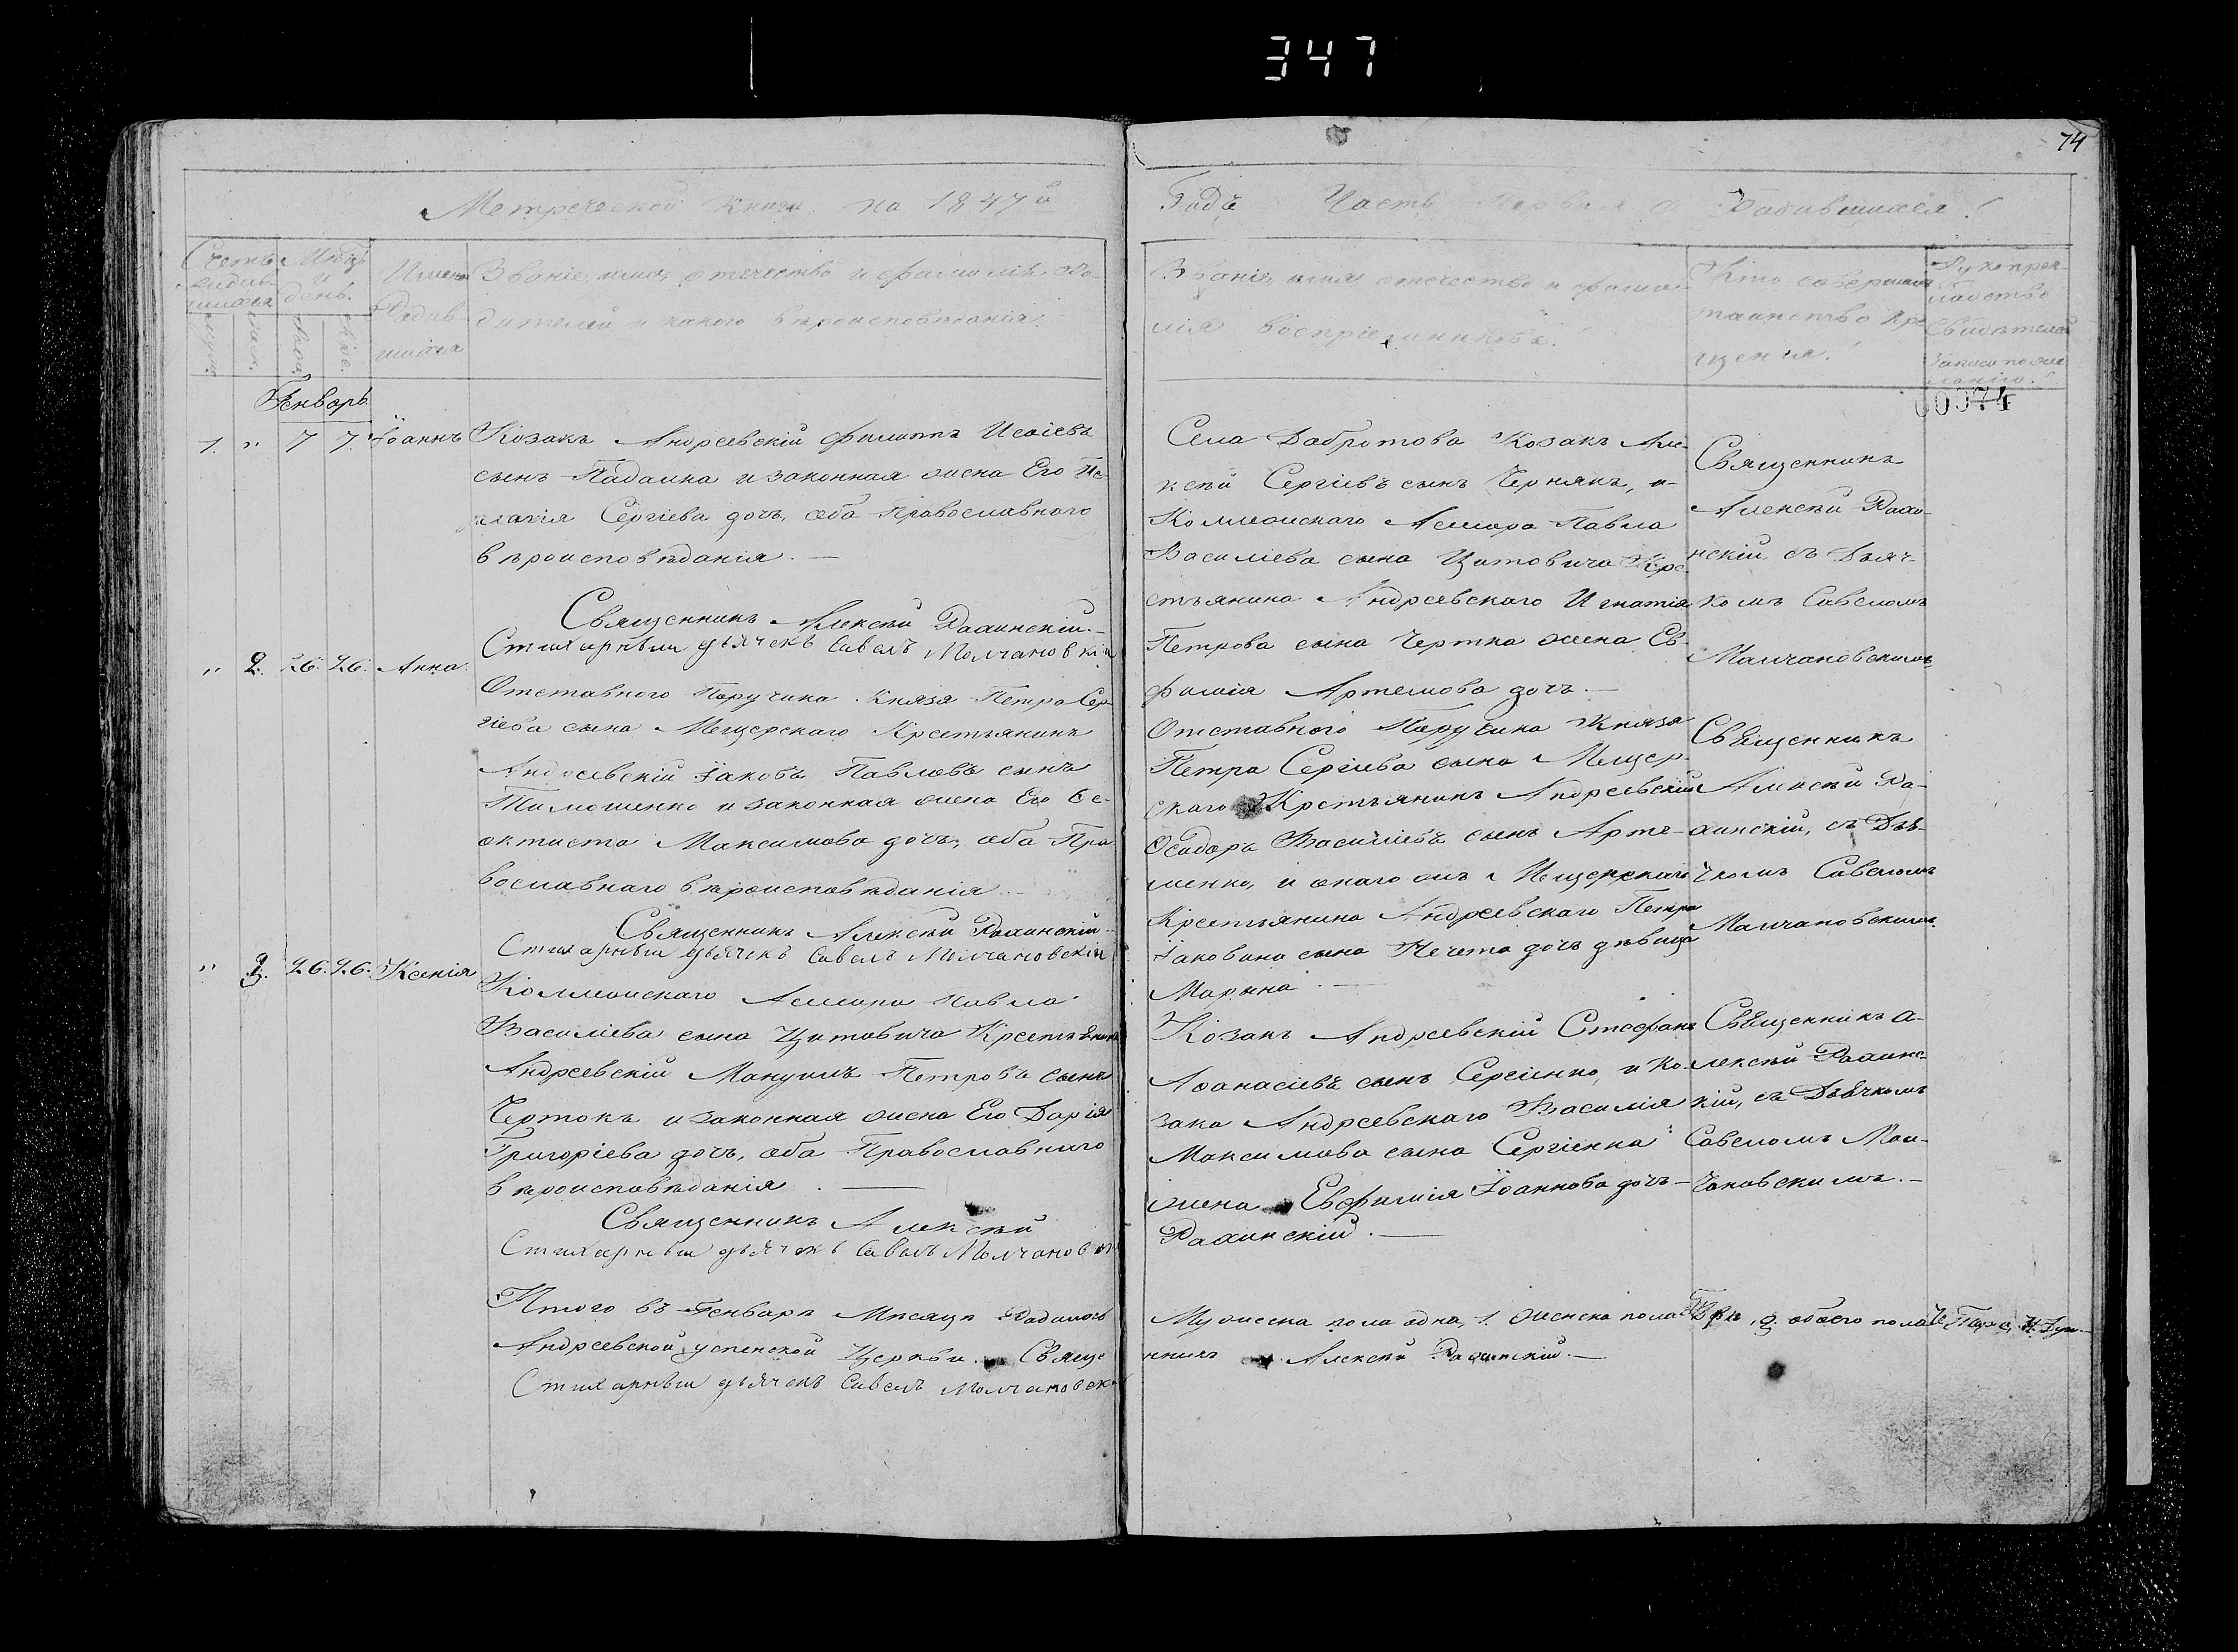 347
74
Метрической Книги на 1847й
Годъ Часть Первая Родившихся!
Счетъ родив-
шихся
Мѣсяцъ
и
день.
Имена
Родив-
шихся
Званіе, имя, отечество и фамилія ро-
дителей и какого вѣроисповѣданія.
Званіе, имя отечество и фами-
лія воспріемниковъ!
Кто совершалъ
таинство кре-
щенія!
Рукопри-
кладство
Свидѣтелей
записи по же-
ланію.!
00074
Генваръ
1. " 7 7. Іоаннъ
Козакъ Андреевскій Филиппъ Исаіевъ
сынъ Падалка и законная жена Его Пе-
лагія Сергіева дочь, оба Православнаго
вѣроисповѣданія. —
Священникъ Алексѣй
Стихарный дьячекъ Савелъ Молчановскій
Села Добротова Козакъ Але-
ксѣй Сергіевъ сынъ Чернякъ, и
Коллежскаго Асесора Павла
Василіева сына Цитовича Кре-
стьянина Андреевскаго Игнатія
Петрова сына Чертка жена Ев-
фимія Артемова дочь. —
Священникъ
Алексѣй
нскій съ Дьяч-
комъ Савеломъ
Малчановскимъ
" 2. 26. 26. Анна.
Отставного Поручика Князя Петра Сер-
гіева сына Мещерскаго Крестьянинъ
Андреевскій Іаковъ Павловъ сынъ
Тимошенко и законная жена Его Ѳе-
октиста Максимова дочь, оба Пра
вославнаго вѣроисповѣданія. —
Священникъ Алексѣй
Стихарный дьячекъ Савелъ Молчановскій
Отставного Поручика Князя
Петра Сергіева сына Мещер-
скаго Крестьянинъ Андреевскій
Ѳеодоръ Василіевъ сынъ Арте-
менко, и онаго жъ Мещерскаго
Крестьянина Андреевскаго Петра
Іаковина сына дочь дѣвица
Марына. —
Священникъ
Алексѣй
съ Дья-
чкомъ Савеломъ
Малчановскимъ.
" 3. 26. 26. Ксенія
Коллежскаго Асесора Павла
Василіева сына Цитовича Крестьянинъ
Андреевскій Мануилъ Петровъ сынъ
Чертокъ и законная жена Его Дарія
Григоріева дочь, оба Православнаго
вѣроисповѣданія. —
Священникъ Алексѣй
Стихарный дьячекъ Савелъ Молчановск
Козакъ Андреевскій Стефанъ
Аѳанасіевъ сынъ Сергіенко, и Ко-
зака Андреевскаго Василія
Максимова сына Сергіенка
жена Евфимія Іоаннова дочь —
Священникъ А-
лексѣй
кій, съ Дьячкомъ
Савеломъ Мол-
чановскимъ. —
Итого въ Генварѣ Мѣсяцѣ Родилось
Андреевской Успенской Церкви. Свяще
Стихарный дьячекъ Савелъ Молчановск
Мужеска пола одна, 1. Женска пола Двѣ, 2. обоего пола
нникъ Алексѣй